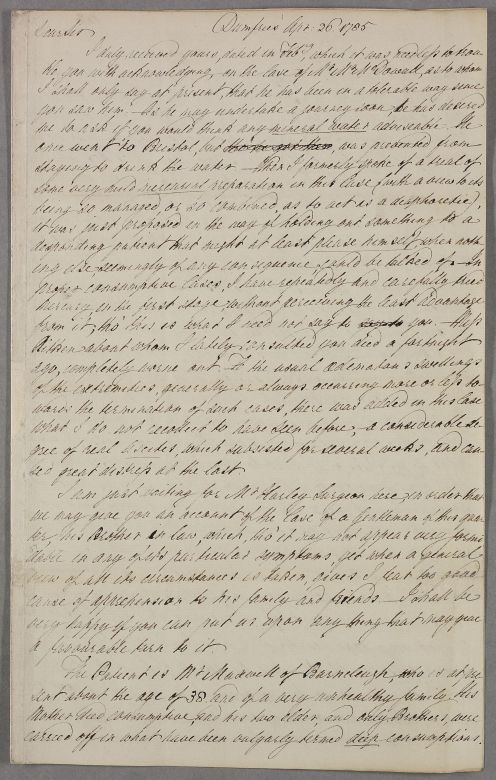 Dear Sir Dumfries Apr. 26 1785
I duly received yours dated in which it was needless to trou-
ble you with acknowledging, in the case of Mr Wm McDowall, as to whom
I shall only say at present, that he has been in a tolerable way since
you saw him. As he may undertake a journey soon he has desired
me to ask if you would think any mineral water adviseable. He
once went to Bristol, but was prevented from
staying to drink the water. When I formerly spoke of a trial of
some very mild mercurial preparation in this Case (with a view to its
being so managed, or so combined, as to act as a diaphoretic)
it was just proposed in the way of holding out something to a
desponding patient that might at least please himself when noth-
ing else seemingly of any consequence could be talked of. In
proper consumptive Cases, I have repeatedly and carefully tried
Mercury in the first stage without perceiving the least advantage
from it, tho' this is what I need not say to you. Miss
about whom I lately consulted you died a fortnight
ago, completely worne out. To the usual oedematous swellings
of the extremities, generally or always occurring more or less to-
wards the termination of such cases, there was added in this Case
what I do not recollect to have seen before, a considerable de-
gree of real Ascites, which subsisted for several weeks, and cau-
sed great distress at the last.
I am just waiting for Mr Harley Surgeon here, in order that
we may give you an account of the Case of a Gentleman of this quar-
ter, his Brother in law, which, tho' it may not appear very formi-
dable in any of its particular symptoms, yet when a general
view of all its circumstances is taken, gives I fear too good
cause of apprehension to his family and friends. I shall be
very happy if you can put us upon any thing that may give
a favourable turn to it.
The Patient is Mr Maxwell of Barncleugh, who is at pre-
sent about the age of 38, and of a very unhealthy family. His
Mother died consumptive, and his two elder, and only Brothers, were
carried off in what have been vulgarly termed deep consumptions.